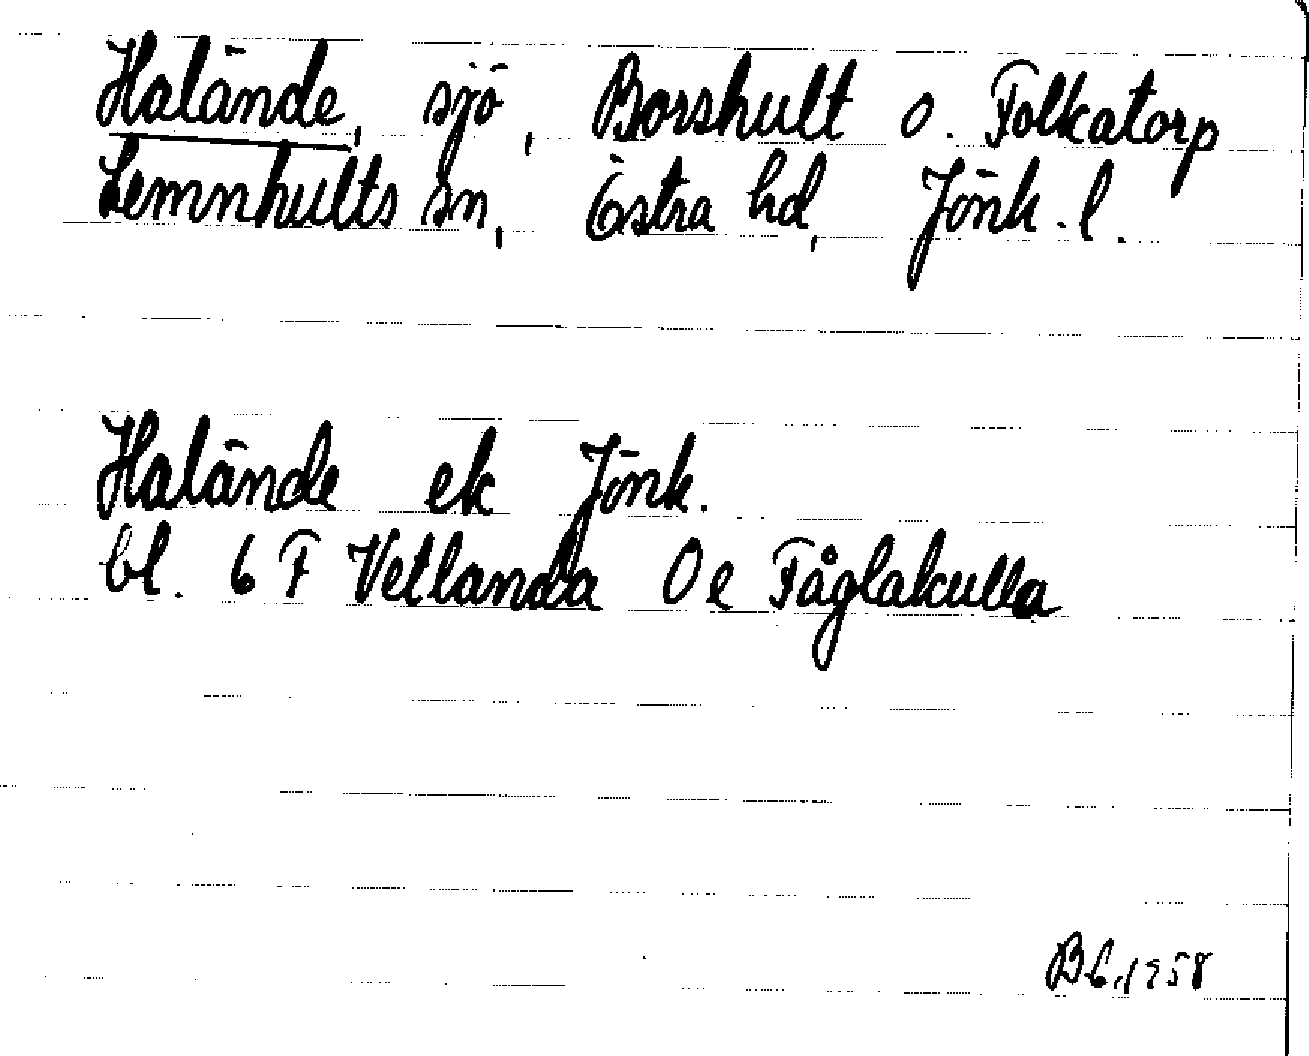 Halände, sjö, Borshult o. Folkatorp
Lemnhults sn, Östra hd, Jönk. l.
Halände ek Jönk.
bl. 6 F Vetlanda 0 e Fåglakulla
Bb 1958